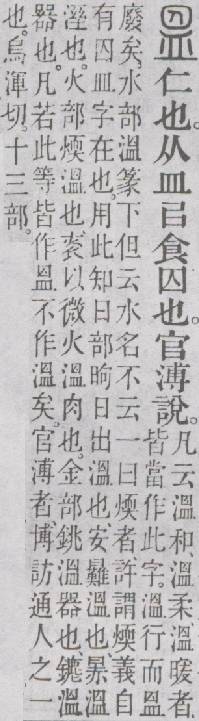 𥁕仁也。从皿㠯食囚也。官溥說。
凡云溫和、溫柔、溫暖者
皆當作此字。溫行而𥁕
廢矣。水部溫篆下但云水名。不云一曰煗者。許謂煗義自
有囚皿字在也。用此知日部昫日出溫也。安㬮溫也。㬈溫
溼也。火部煗溫也。以微火溫肉也。金部銚溫器也。鏕溫
器也。凡若此等皆作𥁕不作溫矣。官溥者。博訪通人之一
也。烏渾切。十三部。